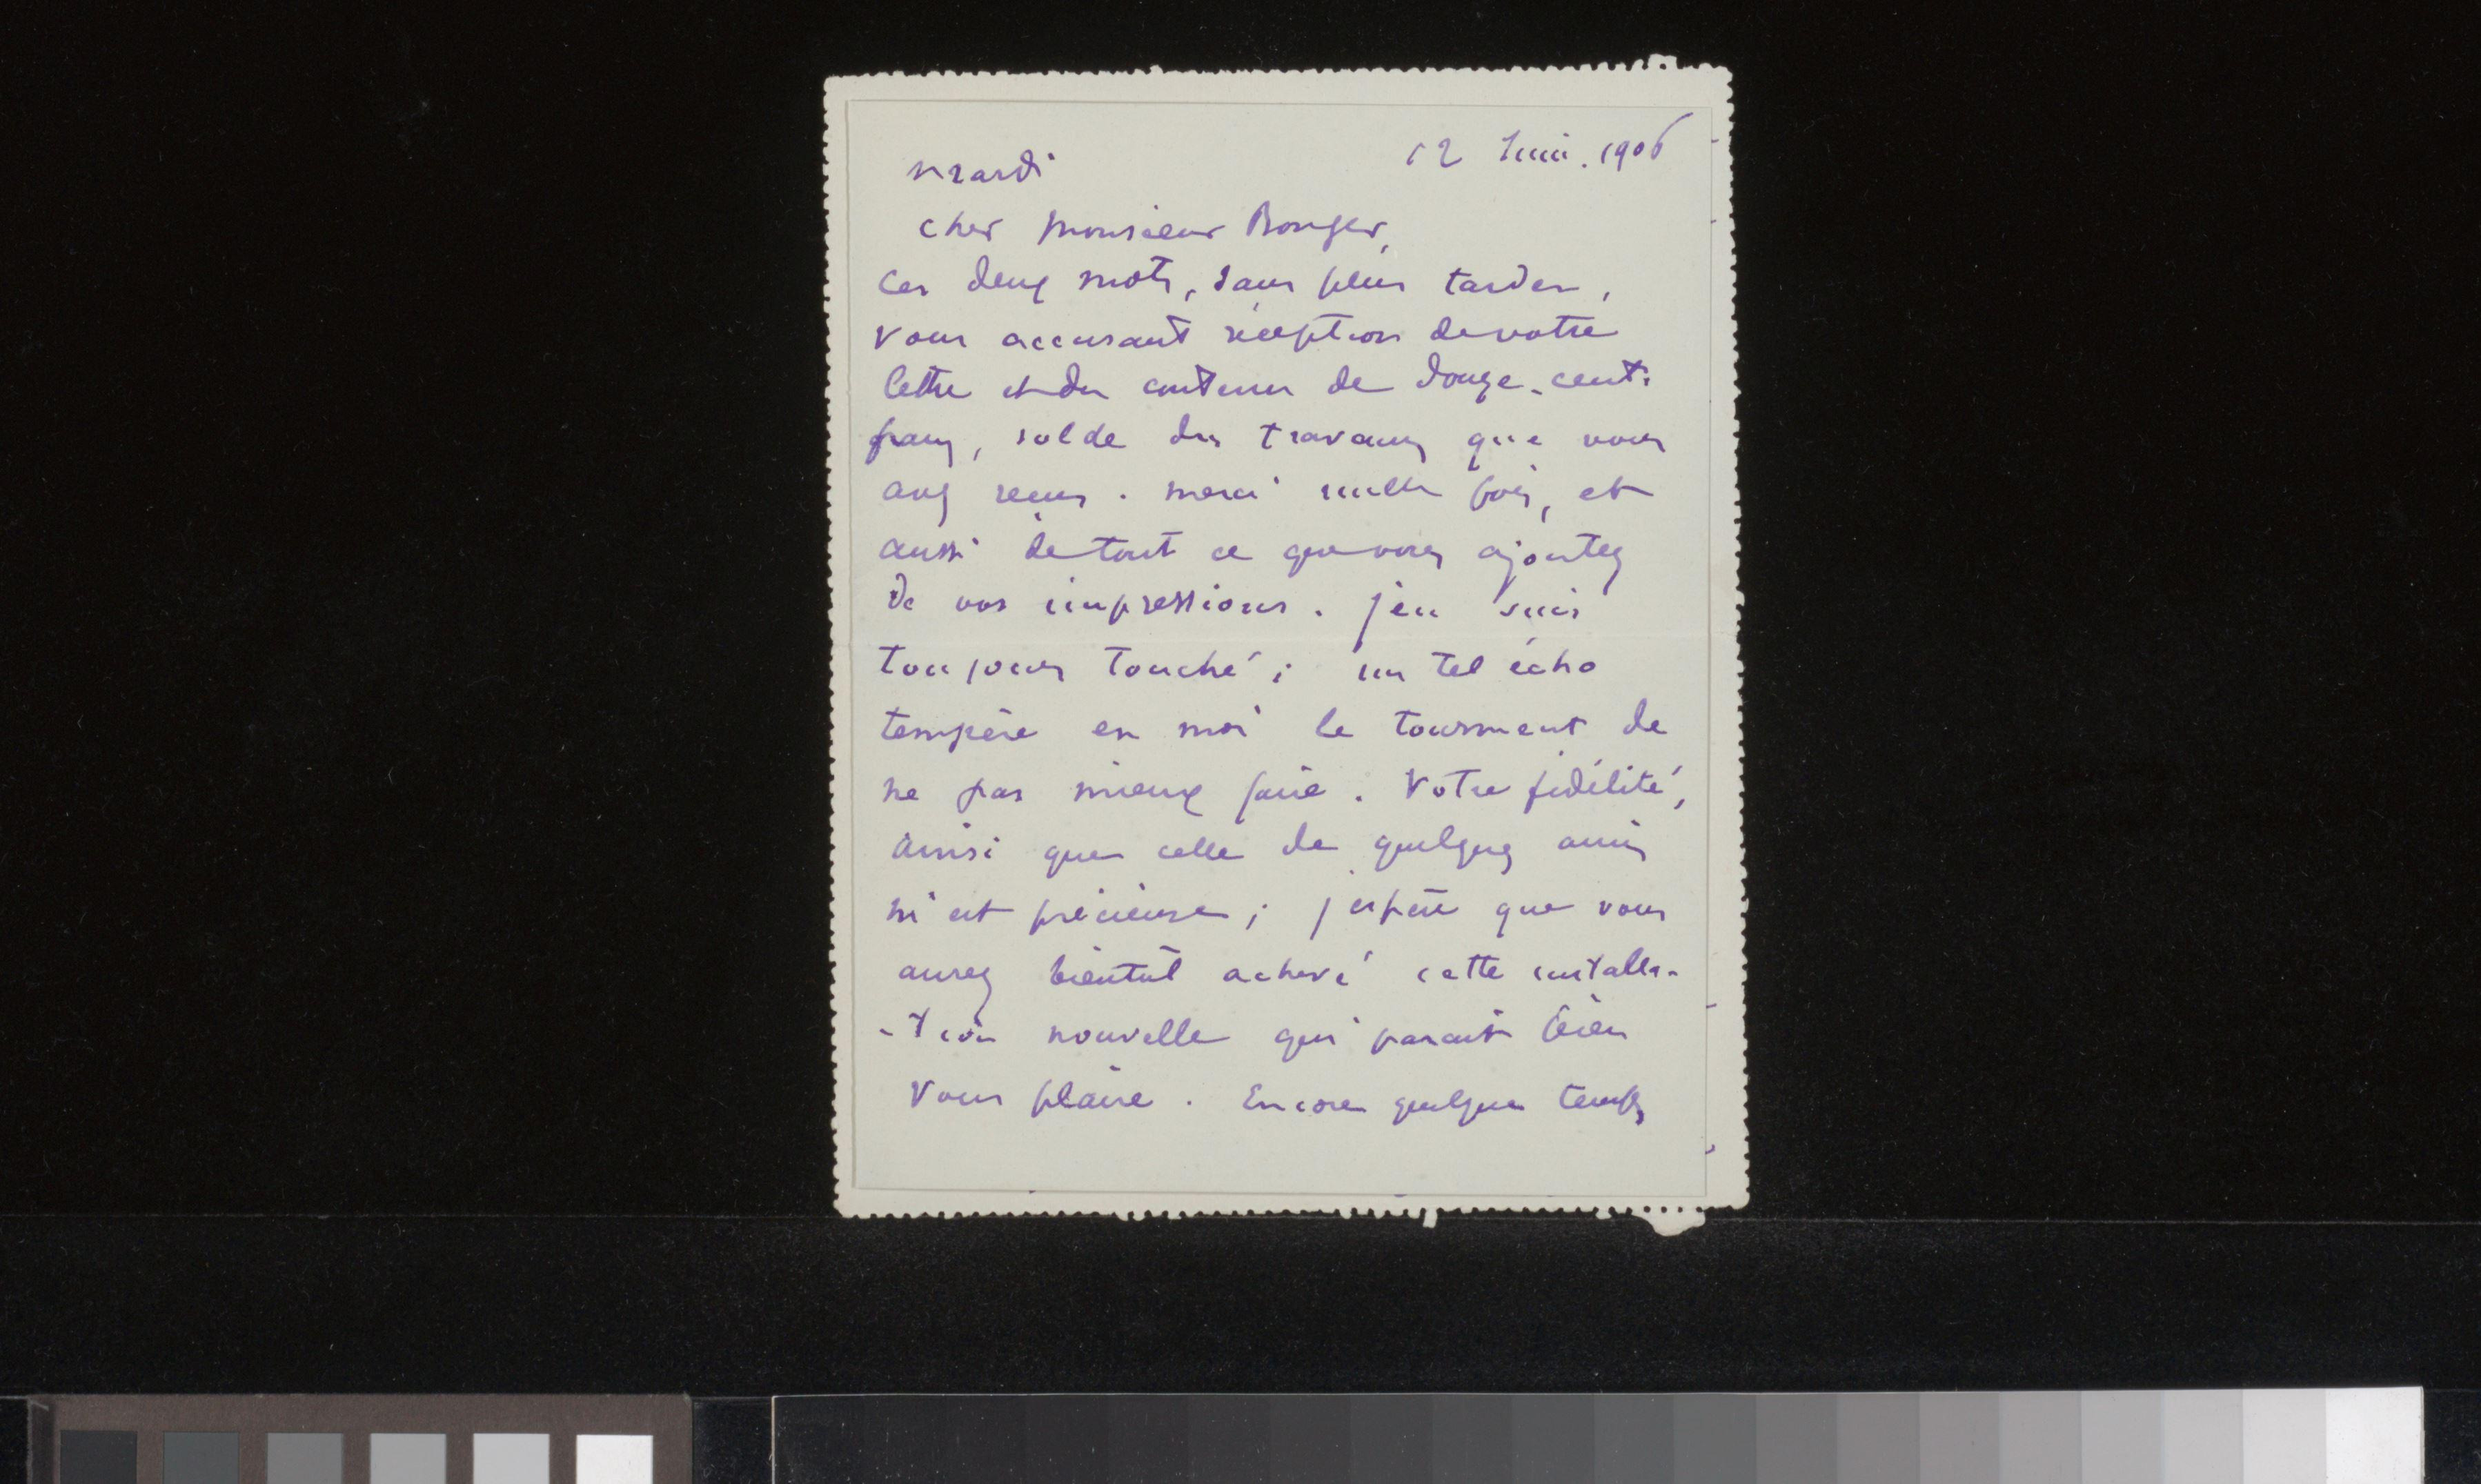 mardi
12 Juin. 1906
cher Monsieur Bonger,
Ces deux mots, sans plus tarder,
vous accusant réception de votre
lettre et du contenu de douze-cents
francs, solde des travaux que vous
avez reçus. merci mille fois, et
aussi de tout ce que vous ajoutez
de vos impressions. j'en suis
toujours touché ; un tel écho
tempère en moi le tourment de
ne pas mieux faire. Votre fidélité,
ainsi que celle de quelques amis
m'est précieuse ; j'espère que vous
aurez bientôt achevé cette installa-
-tion nouvelle qui parait bien
vous plaire. Encore quelque temps